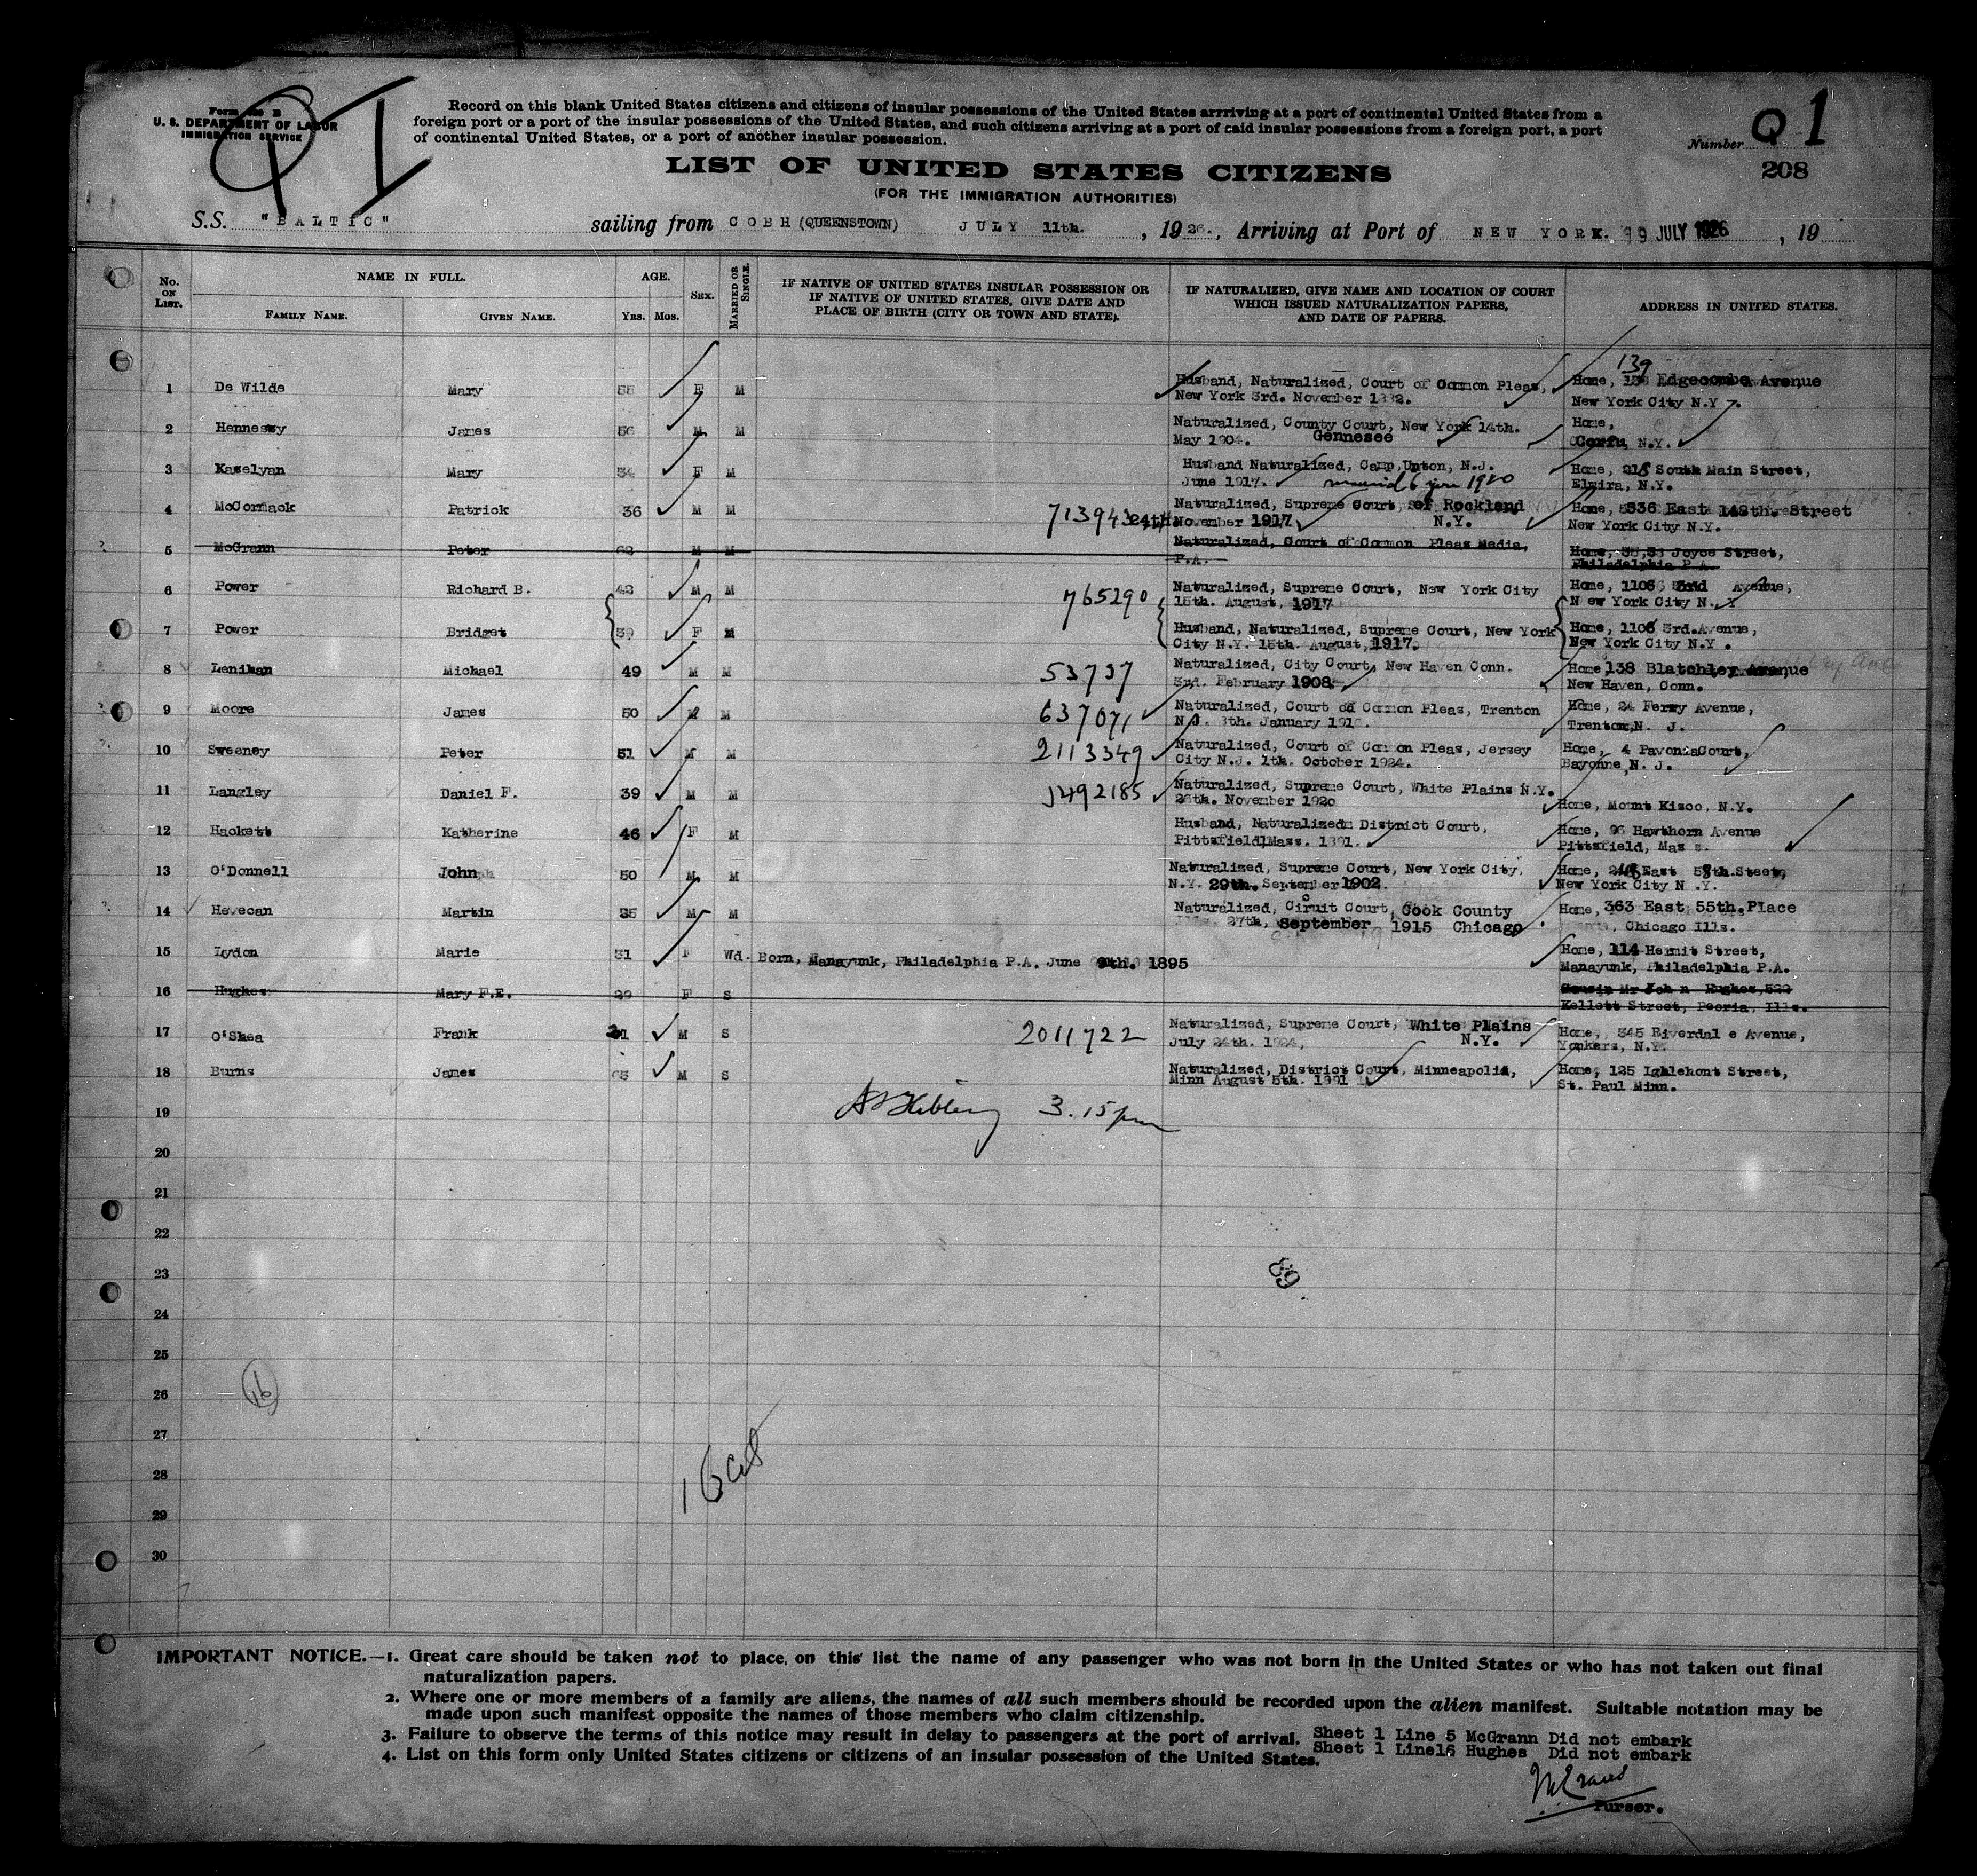 Form 630 B
U. S. DEPARTMENT OF LABOR
IMMIGRATION SERVICE
Record on this blank United States citizens and citizens of insular possessions of the United States arrriving at a port of continental United States from a
foreign port or a port of the insular possessions of the United States, and such citizens arriving at a port of caid insular possessions from a foreign port, a port
of continental United States, or a port of another insular possession.
Number Q 1
208
LIST OF UNITED STATES CITIZENS
(FOR THE IMMIGRATION AUTHORITIES)
S.S. "BALTIC" sailing from COBH (QUEENSTOWN) JULY 11th. , 1926., Arriving at Port of NEW YORK. 19 JULY 1926 , 19
No. ON LIST. NAME IN FULL. AGE. SEX. MARRIED OR SINGLE. IF NATIVE OF UNITED STATES INSULAR POSSESSION OR IF NATIVE OF UNITED STATES, GIVE DATE AND PLACE OF BIRTH (CITY OR TOWN AND STATE). IF NATURALIZED, GIVE NAME AND LOCATION OF COURT WHICH ISSUED NATURALIZATION PAPERS, AND DATE OF PAPERS. ADDRESS IN UNITED STATES.
FAMILY NAME. GIVEN NAME. YRS. MOS.
139
1 De Wilde Mary F M Husband, Naturalized, Court of Common Pleas, Home, Edgecombe Avenue
New York 3rd. November New York City N.Y.
2 Hennessy James 56 M M Naturalized, County Court, New York 14th. Home,
May 1904. Gennesee Corfu, N.Y.
3 Kaselyan Mary 34 F M Husband Naturalized, Camp Upton, N.J. Home, 218 South Main Street,
June 1917. married 6 june 1920 Elmira, N.Y.
4 McCormack Patrick 36 M M 713943 Naturalized, Supreme Court, of Rockland Home, 536 East 142th. Street
24th November 1917 N.Y. New York City N.Y.
5 McGrann Peter M M Naturalized, Court of Common Pleas Media, Home, Joyce Street,
P.A. Philadelphia P.A.
6 Power Richard B. 42 M M 765290 Naturalized, Supreme Court, New York City Home, 1106 3rd Avenue,
15th. August, 1917 New York City N.Y
7 Power Bridget 39 F M Husband, Naturalized, Supreme Court, New York Home, 1106 3rd.Avenue,
City N.Y. 15th. August, 1917. New York City N.Y .
8 Lenihan Michael 49 M M 53737 Naturalized, City Court, New Haven Conn. Home, 138 Blatchley Avenue
3rd. February 1908. New Haven, Conn.
9 Moore James 50 M M 637071 Naturalized, Court of Common Pleas, Trenton Home, 24 Ferry Avenue,
N.J. January Trenton, N. J.
10 Sweeney Peter 51 M M 2113349 Naturalized, Court of Common Pleas, Jersey Home, 4 Pavonia Court,
City N.J. 1th. October 1924. Bayonne, N. J.
11 Langley Daniel F. 39 M M 1492185 Naturalized, Supreme Court, White Plains N.Y.
26th. November 1920 Home, Mount Kisco, N.Y.
12 Hackett Katherine 46 F M Husband, Naturalized District Court, Home, 96 Hawthorn Avenue
Pittsfield, Mass. 1891. Pittsfield, Mas s.
13 O'Donnell John 50 M M Naturalized, Supreme Court, New York City, Home, East 58th. Street,
N.Y. 29th. September 1902. New York City N .Y.
14 Hevecan Martin 35 M M Naturalized, Circuit Court, Cook County Home, 363 East 55th. Place
Ills. 27th, September 1915 Chicago , Chicago Ills.
15 Lydon Marie 31 F Wd. Born, Manayunk, Philadelphia P.A. June 9th. 1895 Home, 114 Hermit Street,
Manayunk, Philadelphia P.A.
16 Hughes Mary F.E. 29 F S Cousin Mr Joh n Hughes, 522
Kellett Street, Peoria, Ills.
17 O'Shea Frank 21 M S 2011722 Naturalized, Supreme Court, White Plains Home, 345 Riverdal e Avenue,
July 24th. 1924, N.Y. Yonkers, N.Y.
18 Burns James M S Naturalized, District Court, Minneapolis, Home, 125 Iglehont Street,
Minn August 5th. 1891 St. Paul Minn.
19 3.15 pm
20
21
22
23
24
25
26
27
28
29
30
89
16
16 cit
IMPORTANT NOTICE.—1. Great care should be taken not to place, on this list the name of any passenger who was not born in the United States or who has not taken out final
naturalization papers.
2. Where one or more members of a family are aliens, the names of all such members should be recorded upon the alien manifest. Suitable notation may be
made upon such manifest opposite the names of those members who claim citizenship.
3. Failure to observe the terms of this notice may result in delay to passengers at the port of arrival.
4. List on this form only United States citizens or citizens of an insular possession of the United States.
Sheet 1 Line 5 McGrann Did not embark
Sheet 1 Line16 Hughes Did not embark
Purser.